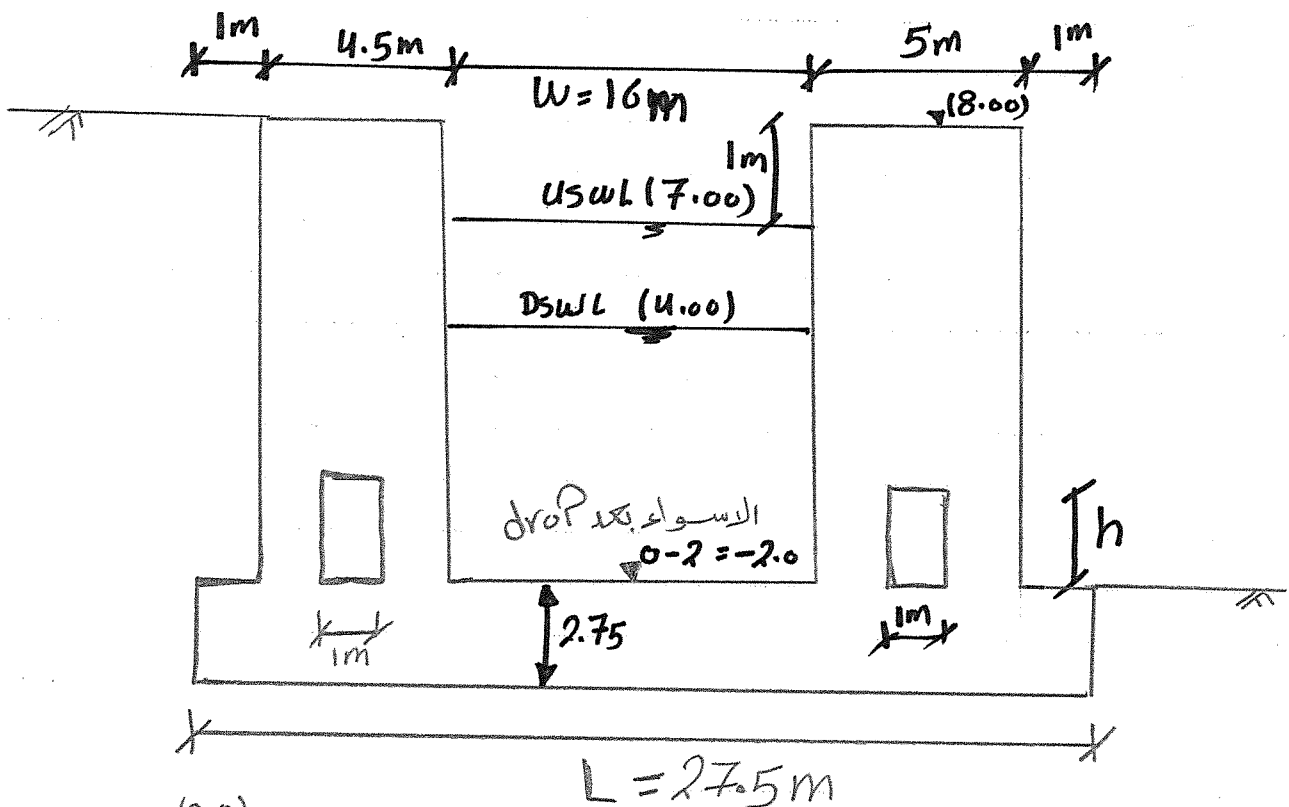 1m 4.5m 5m 1m
W = 16m
(8.00)
1m
USWL (7.00)
DSWL (4.00)
الاسواء بعد drop
0-2 = -2.0
h
2.75
1m 1m
L = 27.5m